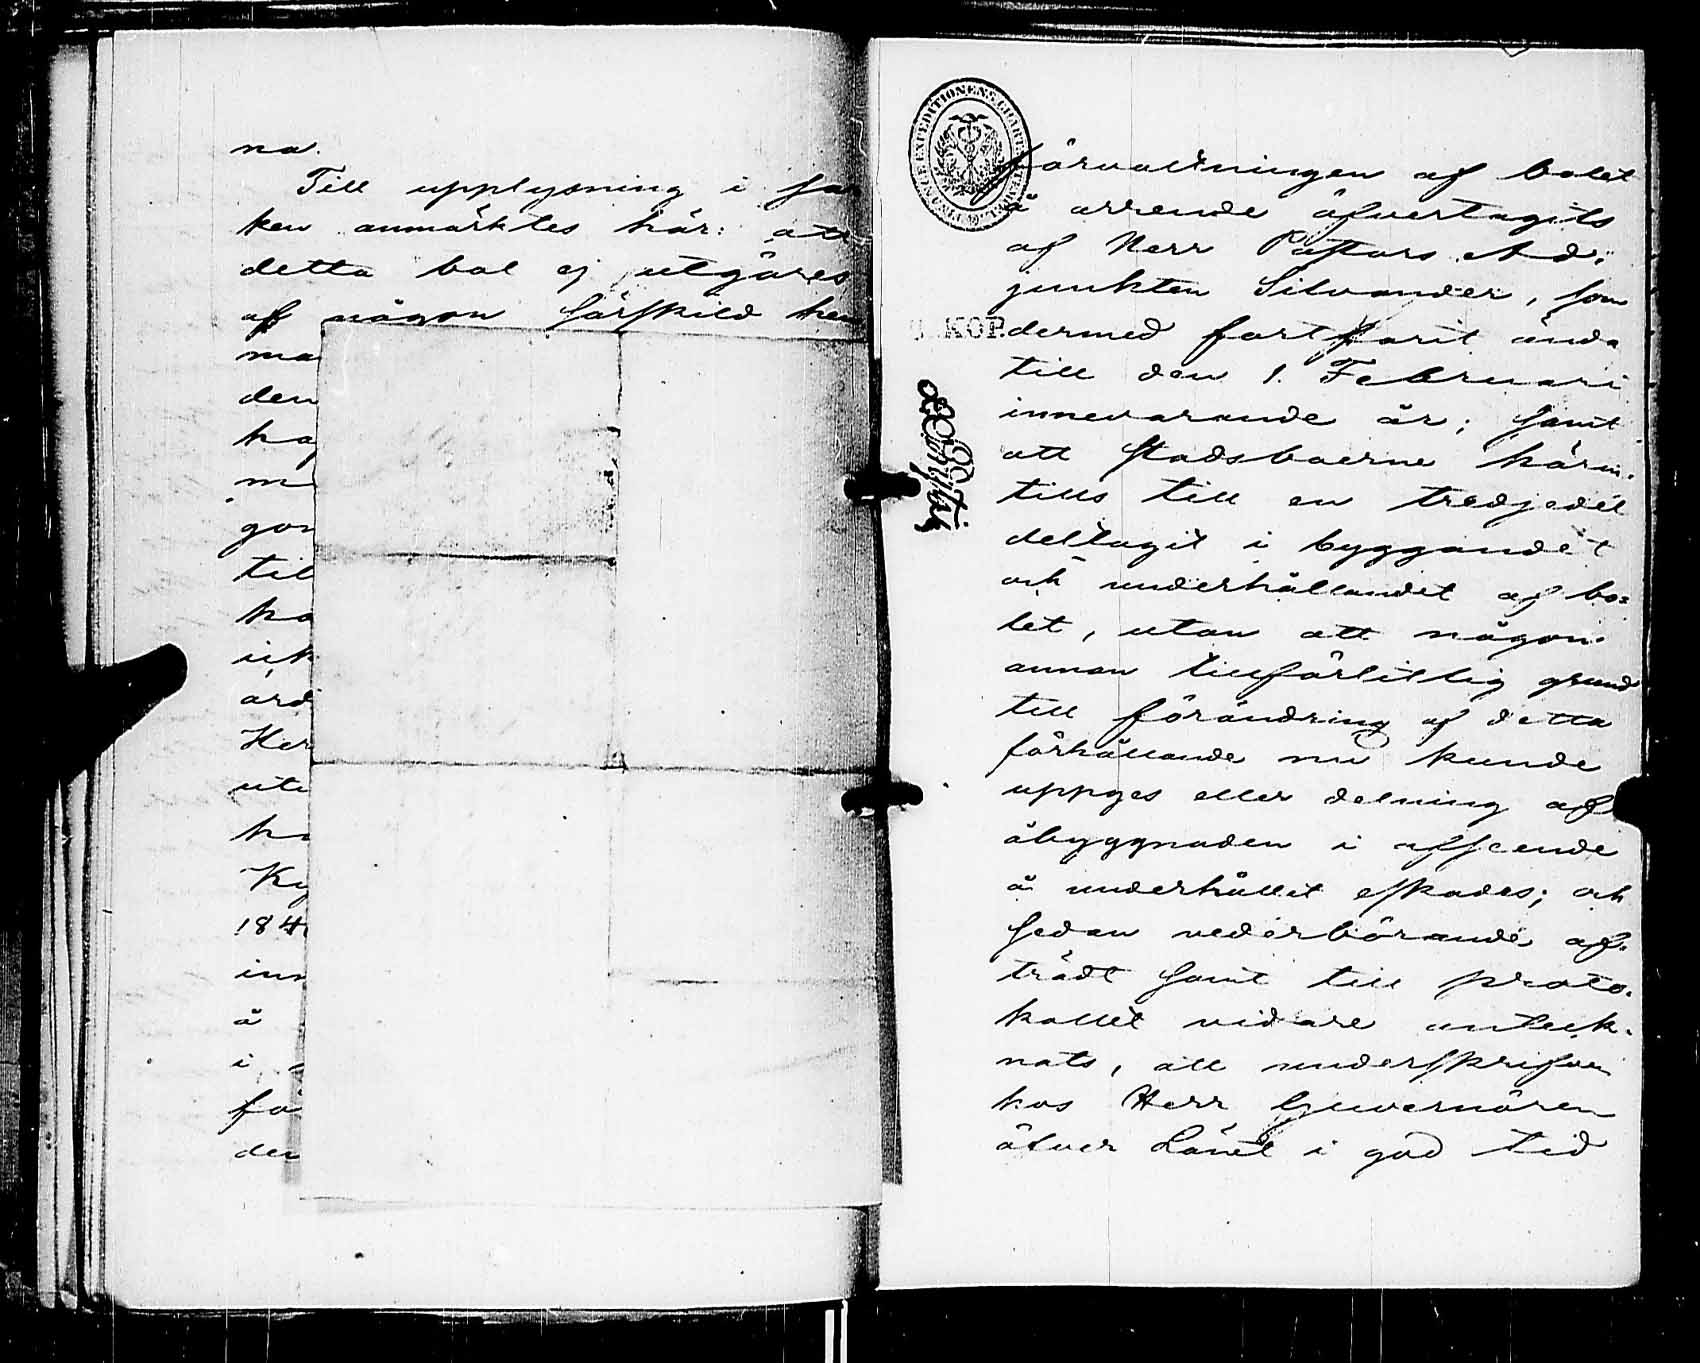 na.
Till upplysning i sa
ken anmärktes här: att
detta bol ej utgöres
af någon särskild hem
ma
den
ha
m
gon
til
ha
ick
ord
Her
uti
ha
Ky
184
inn
å
i
fö
den
förvaltningen af bolet
å arrende öfvertagits
af Herr Pastors Ad-
junkten Silvander, som
KOP.
dermed fortfarit ända
till den 1. Februari
innevarande år; samt
att stadsboerne härin-
tills till en tredjedel
deltagit i byggandet
och underhållandet af bo-
let, utan att någon
annan tillförlitlig grund
till förändring af detta
förhållande nu kunde
uppges eller delning af
åbyggnaden i afseende
å underhållet eskades; och
sedan vederbörande af-
trädt samt till proto-
kollet vidare anteck-
nats, att underskrifven
hos Herr Guvernören
öfver Länet i god tid